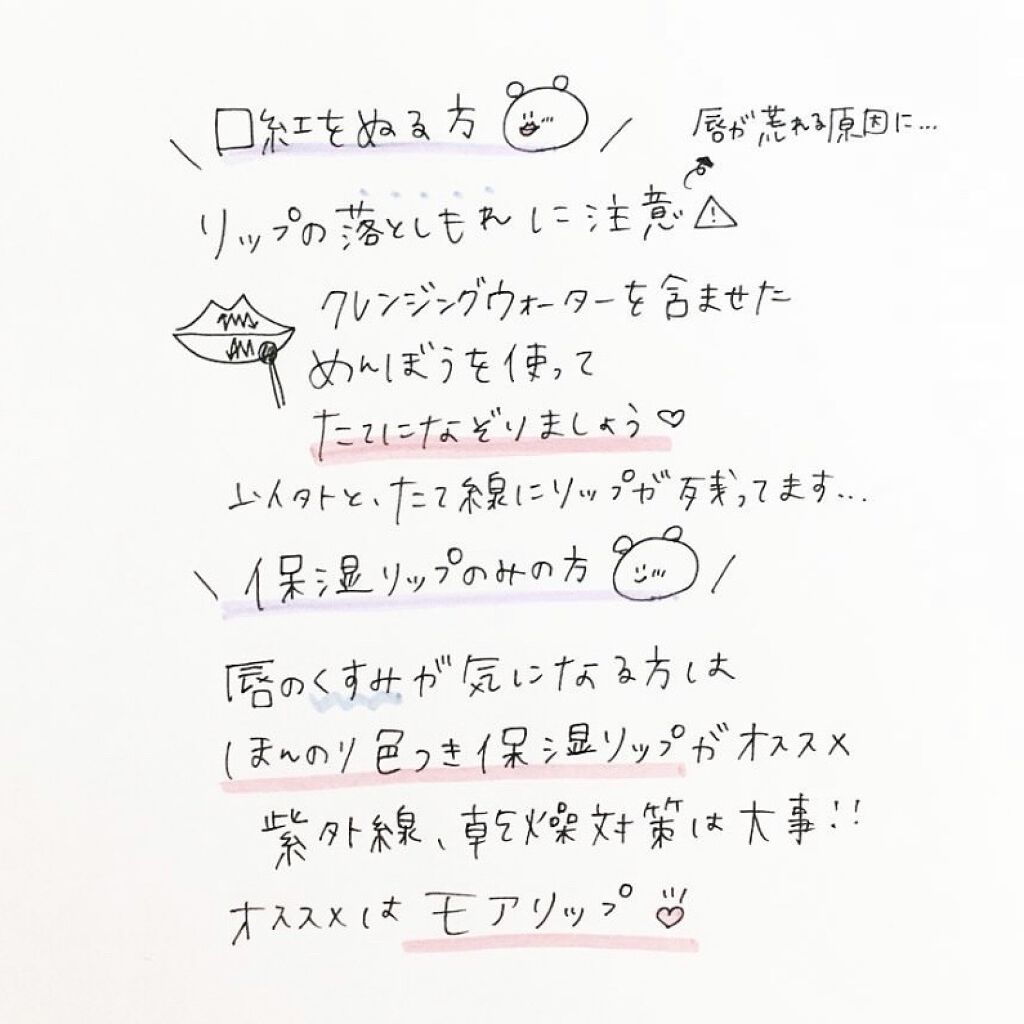 口紅をぬる方
唇が荒れる原因に...
リップの落としもれに注意
クレンジングウォーターを含ませた
めんぼうを使って
たてになぞりましょう♡
意外と、たて線にリップが残ってます...
保湿リップのみの方
唇のくすみが気になる方は
ほんのり色つき保湿リップがオススメ
紫外線、乾燥対策は大事!!
オススメは モアリップ